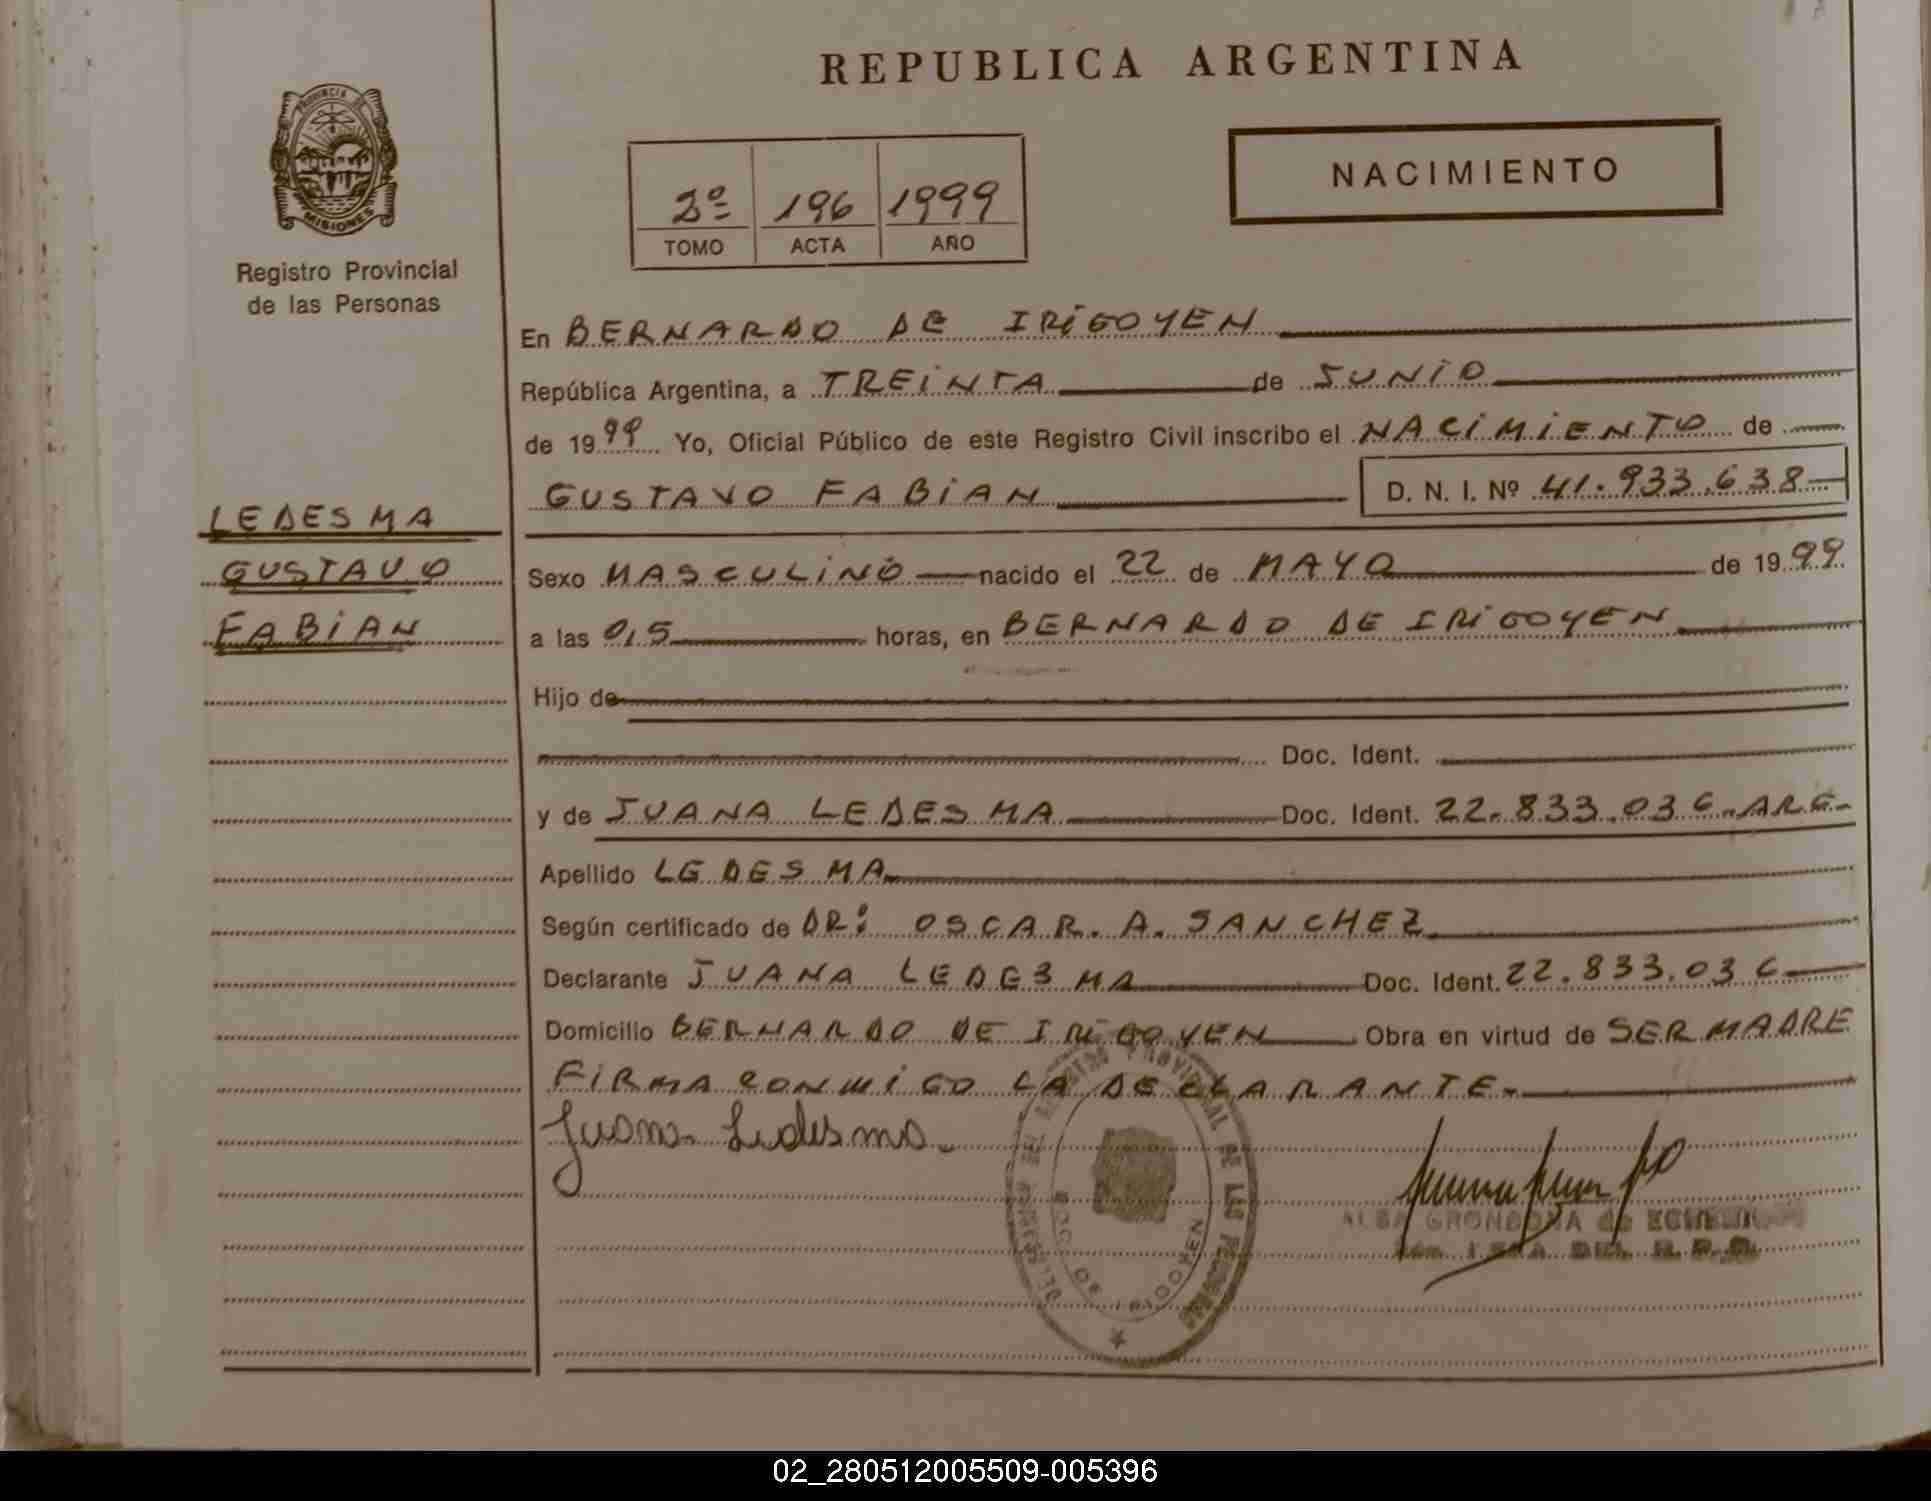 REPUBLICA ARGENTINA
PROVINCIA DE
MISIONES
Registro Provincial
de las Personas
2º 196 1999
TOMO ACTA AÑO
NACIMIENTO
En BERNARDO DE IRIGOYEN
República Argentina, a TREINTA de JUNIO
de 1999 Yo, Oficial Público de este Registro Civil inscribo el NACIMIENTO de
GUSTAVO FABIAN D. N. I. Nº 41.933.638
LEDESMA
GUSTAVO
FABIAN
Sexo MASCULINO nacido el 22 de MAYO de 1999
a las 0,5 horas, en BERNARDO DE IRIGOYEN
Hijo de
Doc. Ident.
y de JUANA LEDESMA Doc. Ident. 22.833.036-ARG-
Apellido LEDESMA
Según certificado de DR: OSCAR. A. SANCHEZ
Declarante JUANA LEDESMA Doc. Ident. 22.833.036
Domicilio BERNARDO DE IRIGOYEN Obra en virtud de SER MADRE
FIRMA CONMIGO LA DECLARANTE.
Juana Ledesma.
REGISTRO PROVINCIAL DE LAS PERSONAS
BDO. DE IRIGOYEN
ALBA GRONDONA de
DEL R.P.P.
02_280512005509-005396